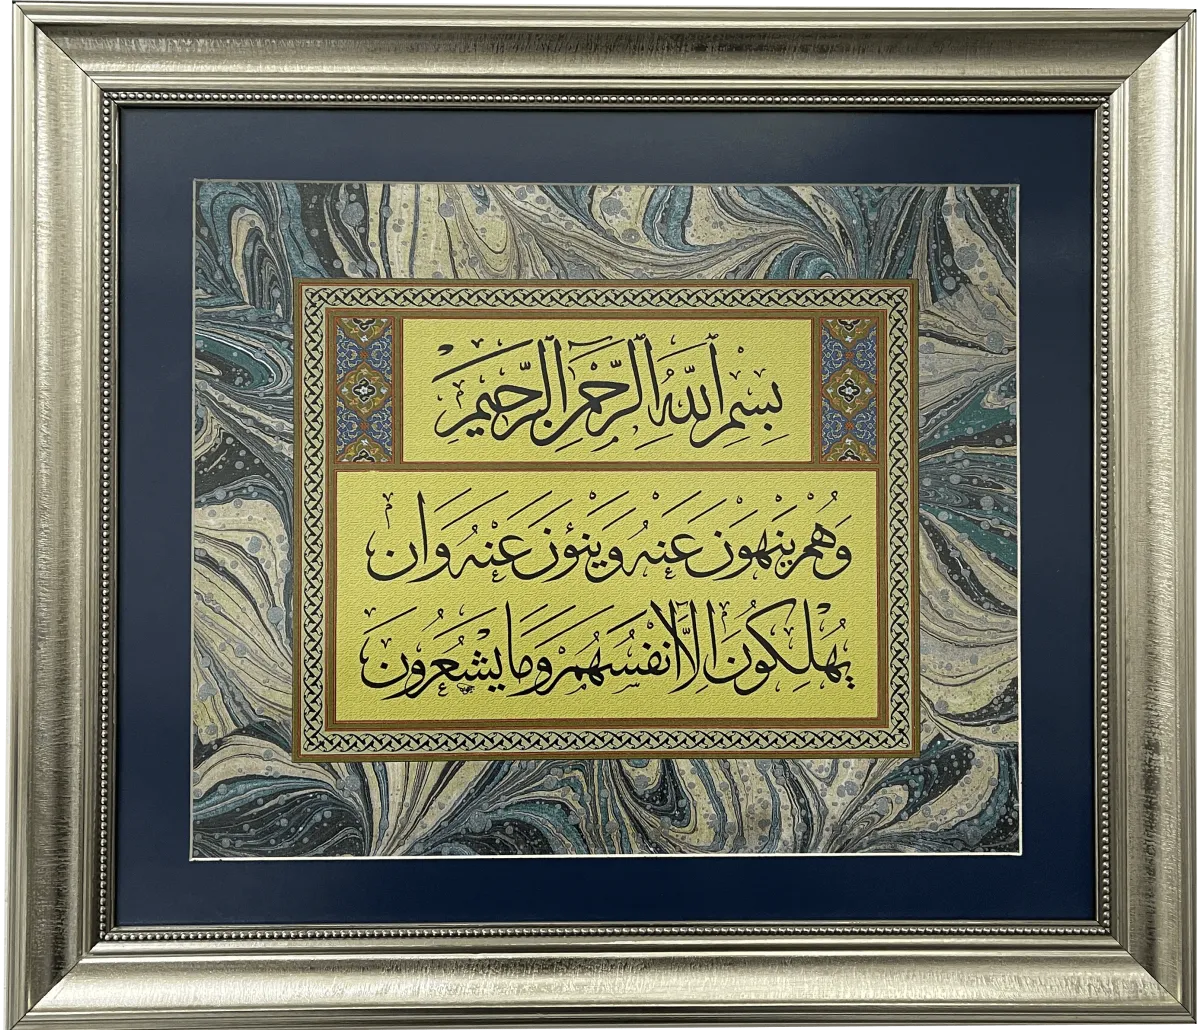 بِسْمِ اللَّهِ الرَّحْمٰنِ الرَّحِيمِ
وَهُمْ يَنْهَوْنَ عَنْهُ وَيَنْئَوْنَ عَنْهُ وَاِنْ
يُهْلِكُونَ اِلَّا اَنْفُسَهُمْ وَمَا يَشْعُرُونَ